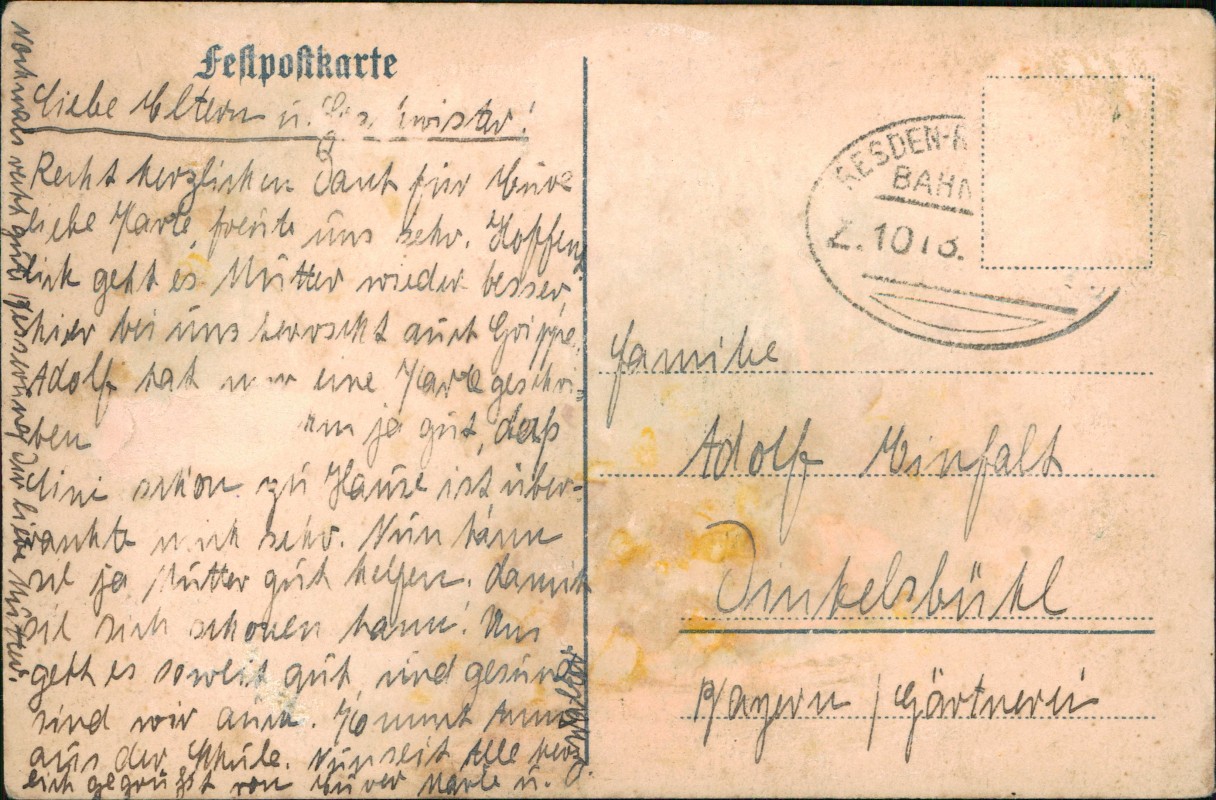 Festpostkarte
Liebe Eltern u. Geschwister!
Recht herzlichen Dank für Eure
liebe Karte, freute uns sehr. Hoffent
lich geht es Mutter wieder besser,
hier bei uns herrscht auch Grippe.
Adolf hat nur eine Karte geschri-
ben ja gut, daß
Lini schon zu Hause ist über-
raschte mich sehr. Nun kann
sie ja Mutter gut helfen. damit
sie sich schonen kann! Uns
geht es soweit gut, und gesund
sind wir auch. Kommt Anna
aus der Schule. Nun seit Alle herz
lich gegrüßt von Eurer Marie u.
Walter
Nochmals recht gute Besserung Dir liebe Mutter.
RESDEN-R
BAHN
Z. 1018.
Familie
Adolf Einfalt
Dinkelsbühl
Bayern / Gärtnerei